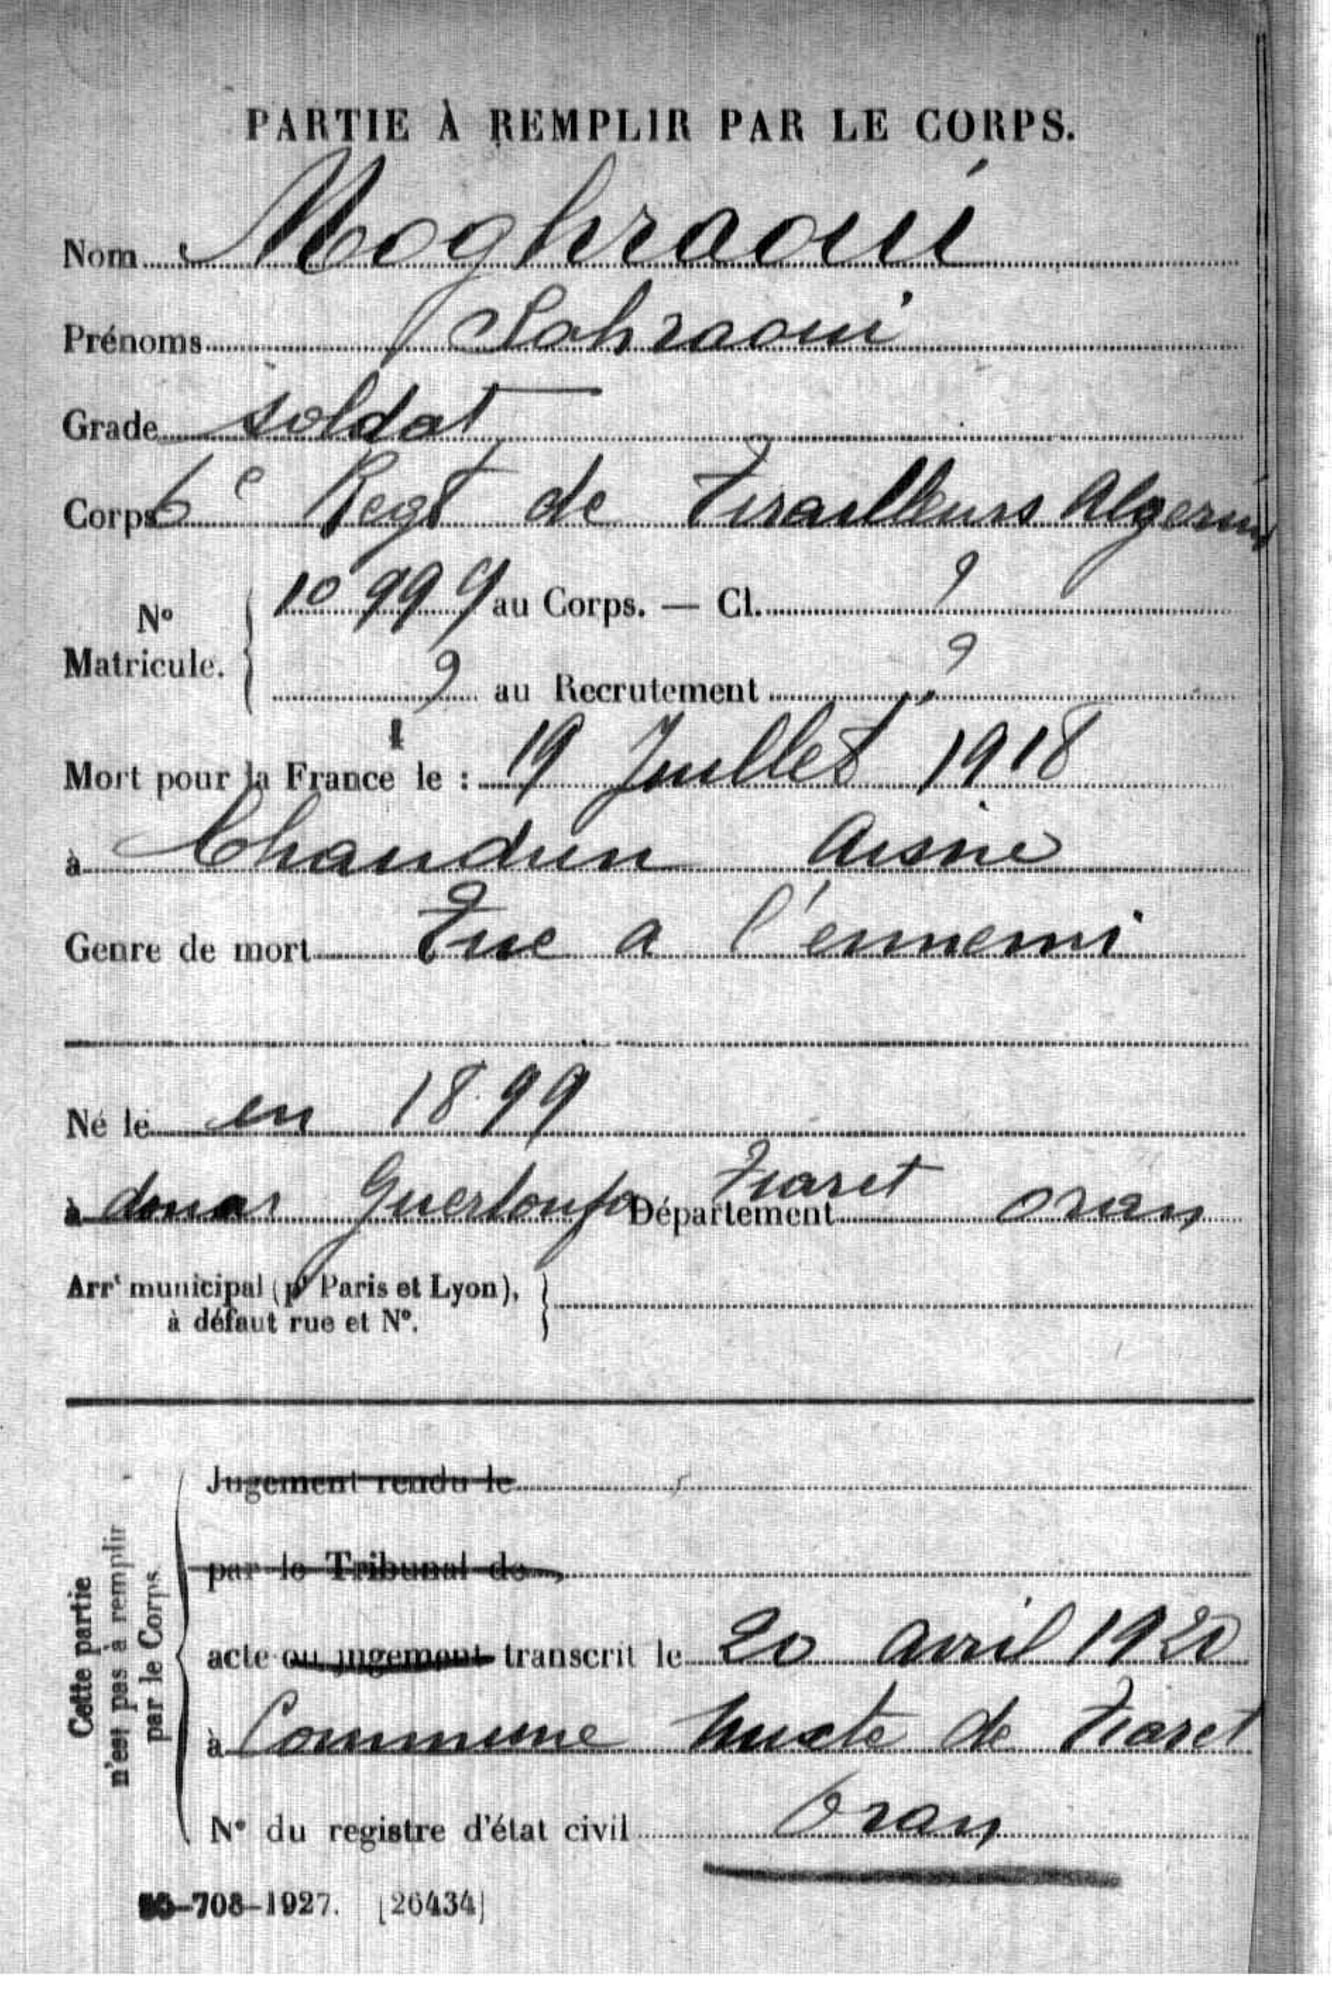 PARTIE À REMPLIR PAR LE CORPS.
Nom Moghraoui
Prénoms Sahraoui
Grade soldat
Corps 6e Regt de Tirailleurs Algeriens
N° Matricule. 10999 au Corps. — Cl. ?
? au Recrutement ?
Mort pour la France le : 19 Juillet 1918
à Chaudun Aisne
Genre de mort Tue a l'ennemi
Né le en 1899
à douar Guertoufa Tiaret Département Oran
Arrt municipal (pr Paris et Lyon),
à défaut rue et N°.
Cette partie
n'est pas à remplir
par le Corps.
Jugement rendu le
par le Tribunal de
acte ou jugement transcrit le 20 avril 1920
à Commune Mixte de Tiaret
N° du registre d'état civil Oran
-708-1927. [26434]